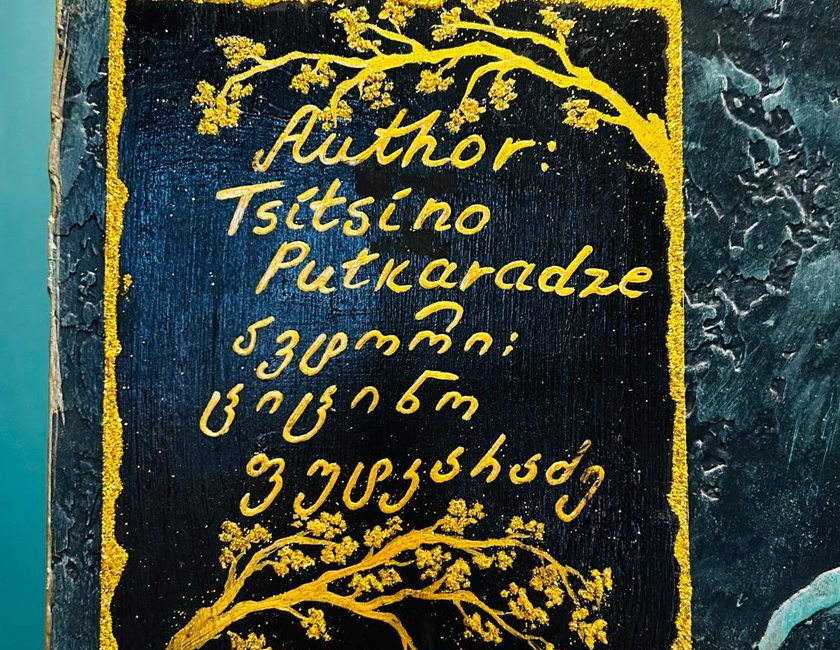 Author:
Tsitsino
Putkaradze
ავტორი:
ციცინო
ფუტკარაძე